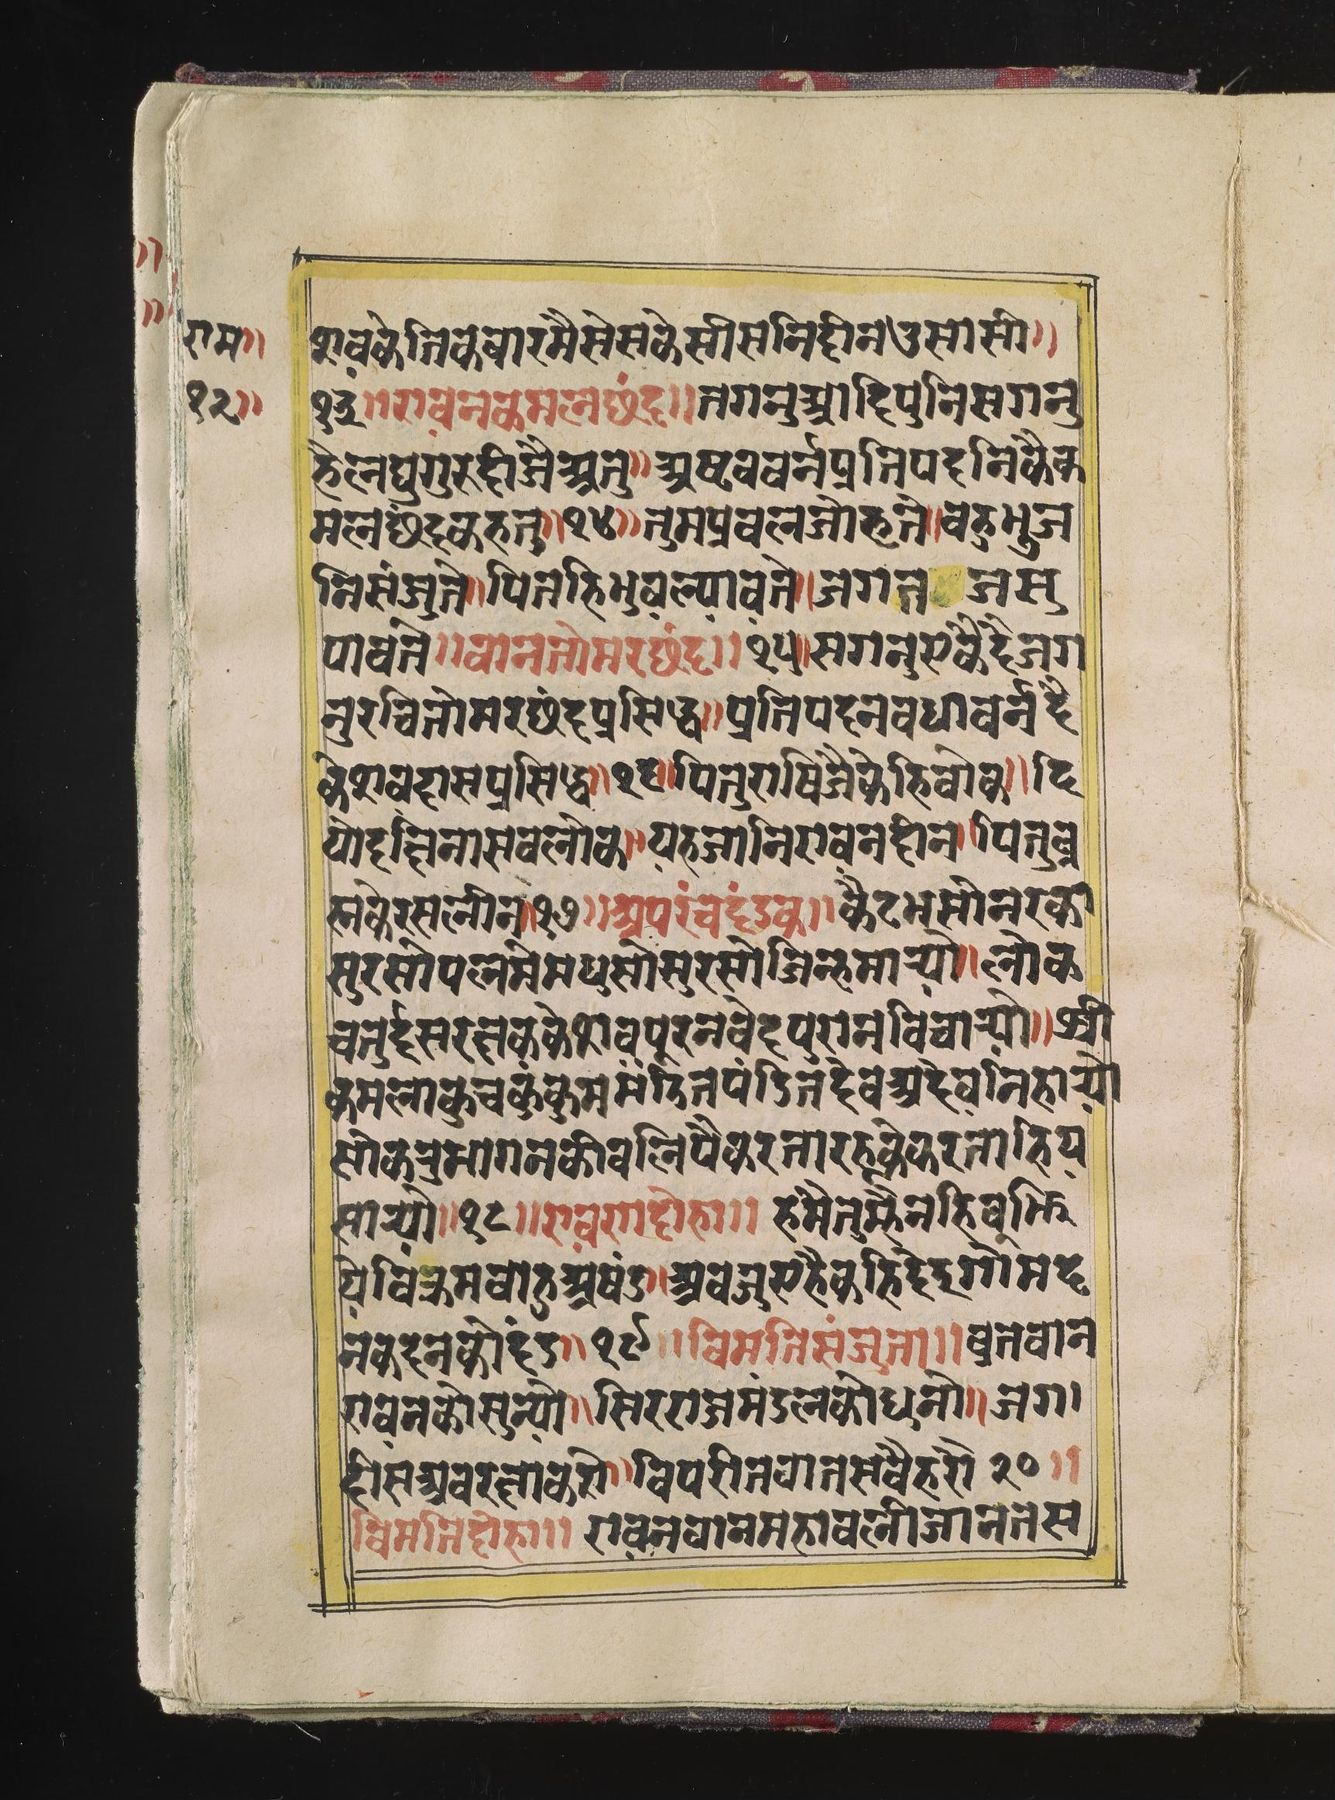 राम॥
१२॥
शवकेतिकवारमैसेसकेसीसनिदीनउसासी॥
१३॥रावनकमलछंद॥नगनुआदिपुनिसगनु
हैलघुगुरुदीजैअनु॥अष्टववर्नप्रतिपदनिकैक
मलछंदकहनु॥१४॥तुमप्रवलजोहृते॥वहुभुज
निसंजुते॥पितहिभुवल्यावते॥जगत जसु
पावते॥वानतोमरछंद॥१५॥सगनुएकैद्वैजग
नुरचितोमरछंदप्रसिद्ध॥प्रतिपदनवधावर्नहै
केशवदासप्रसिद्ध॥१६॥पितुराषिजैकेहिवोक॥दि
योदछिनासवलोक॥यहजानिरावनदीन॥पितुब्र
ह्मकेरसलीन॥१७॥अपरंचदंडक॥कैटभसोनरका
सुरसोपलमेमधुसोसुरसोजिन्हमार्‍यो॥लोक
चतुर्दसरछककेशवपूरनवेदपुरानविचार्‍यो॥श्री
कमलाकुचकुंकुममंडितपंडितदेवअदेवनिहार्‍यो
सोकनुमागनकोवलिपैकरतारहुकेकरताहिप
सार्‍यो॥१८॥रावरादोहा॥हमैतुम्हैनहिवूझि
येविक्रमवाहुअषंड॥अवजुएहैकहिदेइगोमद
नकदनकोदंड॥१९॥विमतिसंजुता॥व्रतवान
रावनकोसुन्यो॥सिरराजमंडलकोधुनो॥जग।
दीसअवरछाकरो॥विपरीतवातसवैहरो २०॥
विमतिदोहा॥रावनवानमहावलीजानतस